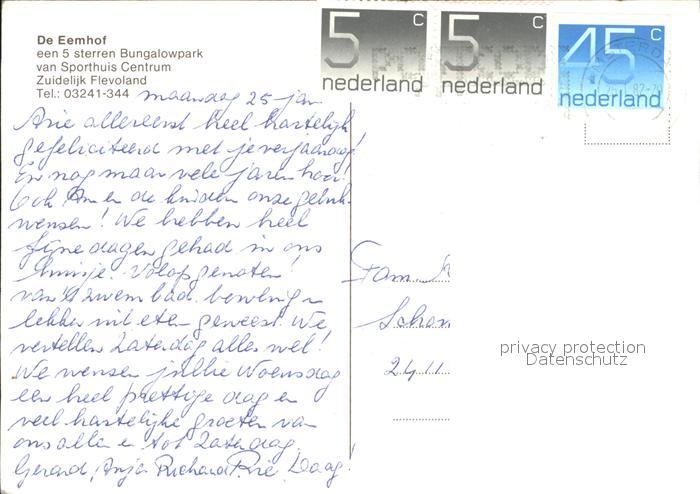 De Eemhof
een 5 sterren Bungalowpark
van Sporthuis Centrum
Zuidelijk Flevoland
Tel.: 03241-344
5 c
nederland
5 c
nederland
45 c
nederland
maandag 25 jan.
Arie allereerst heel hartelijk
gefeliciteerd met je verjaardag!
En nog maar vele jaren hoor!
Ook An en de kinderen onze geluk-
wensen! We hebben heel
fijne dagen gehad in ons
huisje. Volop genoten
van 't zwembad. bowling
lekker uit eten geweest. We
vertellen Zaterdag alles wel!
We wensen jullie Woensdag
een heel prettige dag en
veel hartelijke groeten van
ons allen en tot Zaterdag.
Gerard, Anja Richard Rié. Daag!
Fam.
Schon
2411
privacy protection
Datenschutz